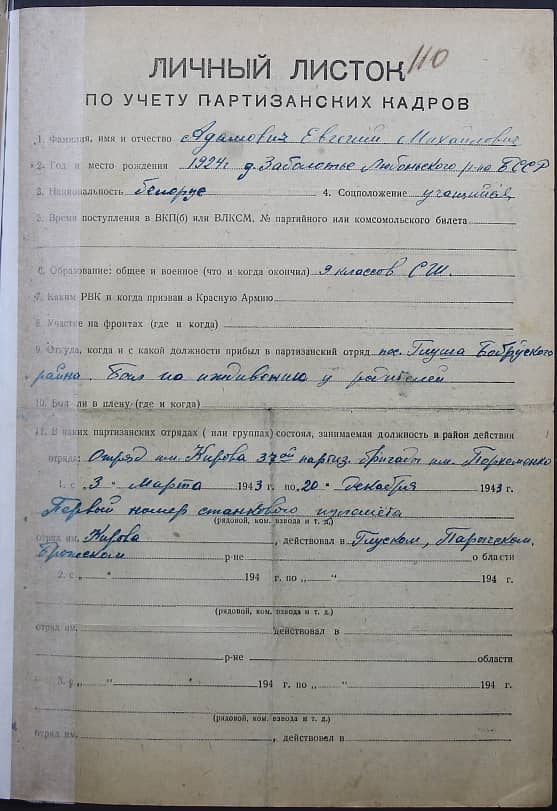 110
ЛИЧНЫЙ ЛИСТОК
ПО УЧЕТУ ПАРТИЗАНСКИХ КАДРОВ
1. Фамилия, имя и отчество Адамович Евгений Михайлович
2. Год и место рождения 1924г. д. Заболотье Любаньского р-на БССР
3. Национальность белорус 4. Соцположение учащийся
5. Время поступления в ВКП(б) или ВЛКСМ, № партийного или комсомольского билета
6. Образование: общее и военное (что и когда окончил) 9 классов СШ.
7. Каким РВК и когда призван в Красную Армию
8. Участие на фронтах (где и когда)
9. Откуда, когда и с какой должности прибыл в партизанский отряд пос. Глуша Бобруйского
района. Был на иждивению у родителей
10. Был ли в плену (где и когда)
11. В каких партизанских отрядах ( или группах) состоял, занимаемая должность и район действия
отряда: Отряд им. Кирова 37ой партиз. бригады им. Пархоменко
1. с „ 3 " марта 1943 г. по „ 20 " декабря 1943 г.
Первый номер станкового пулемета
(рядовой, ком. взвода и т. д.)
отряд им. Кирова, действовал в Глуском, Паричском,
р-не о области
2. с „ " 194 г. по „ " 194 г.
(рядовой, ком. взвода и т. д.)
отряд им. действовал в
р-не области
3. „ " 194 г. по „ " 194 г.
(рядовой, ком. взвода и т. д.)
отряд им. , действовал в